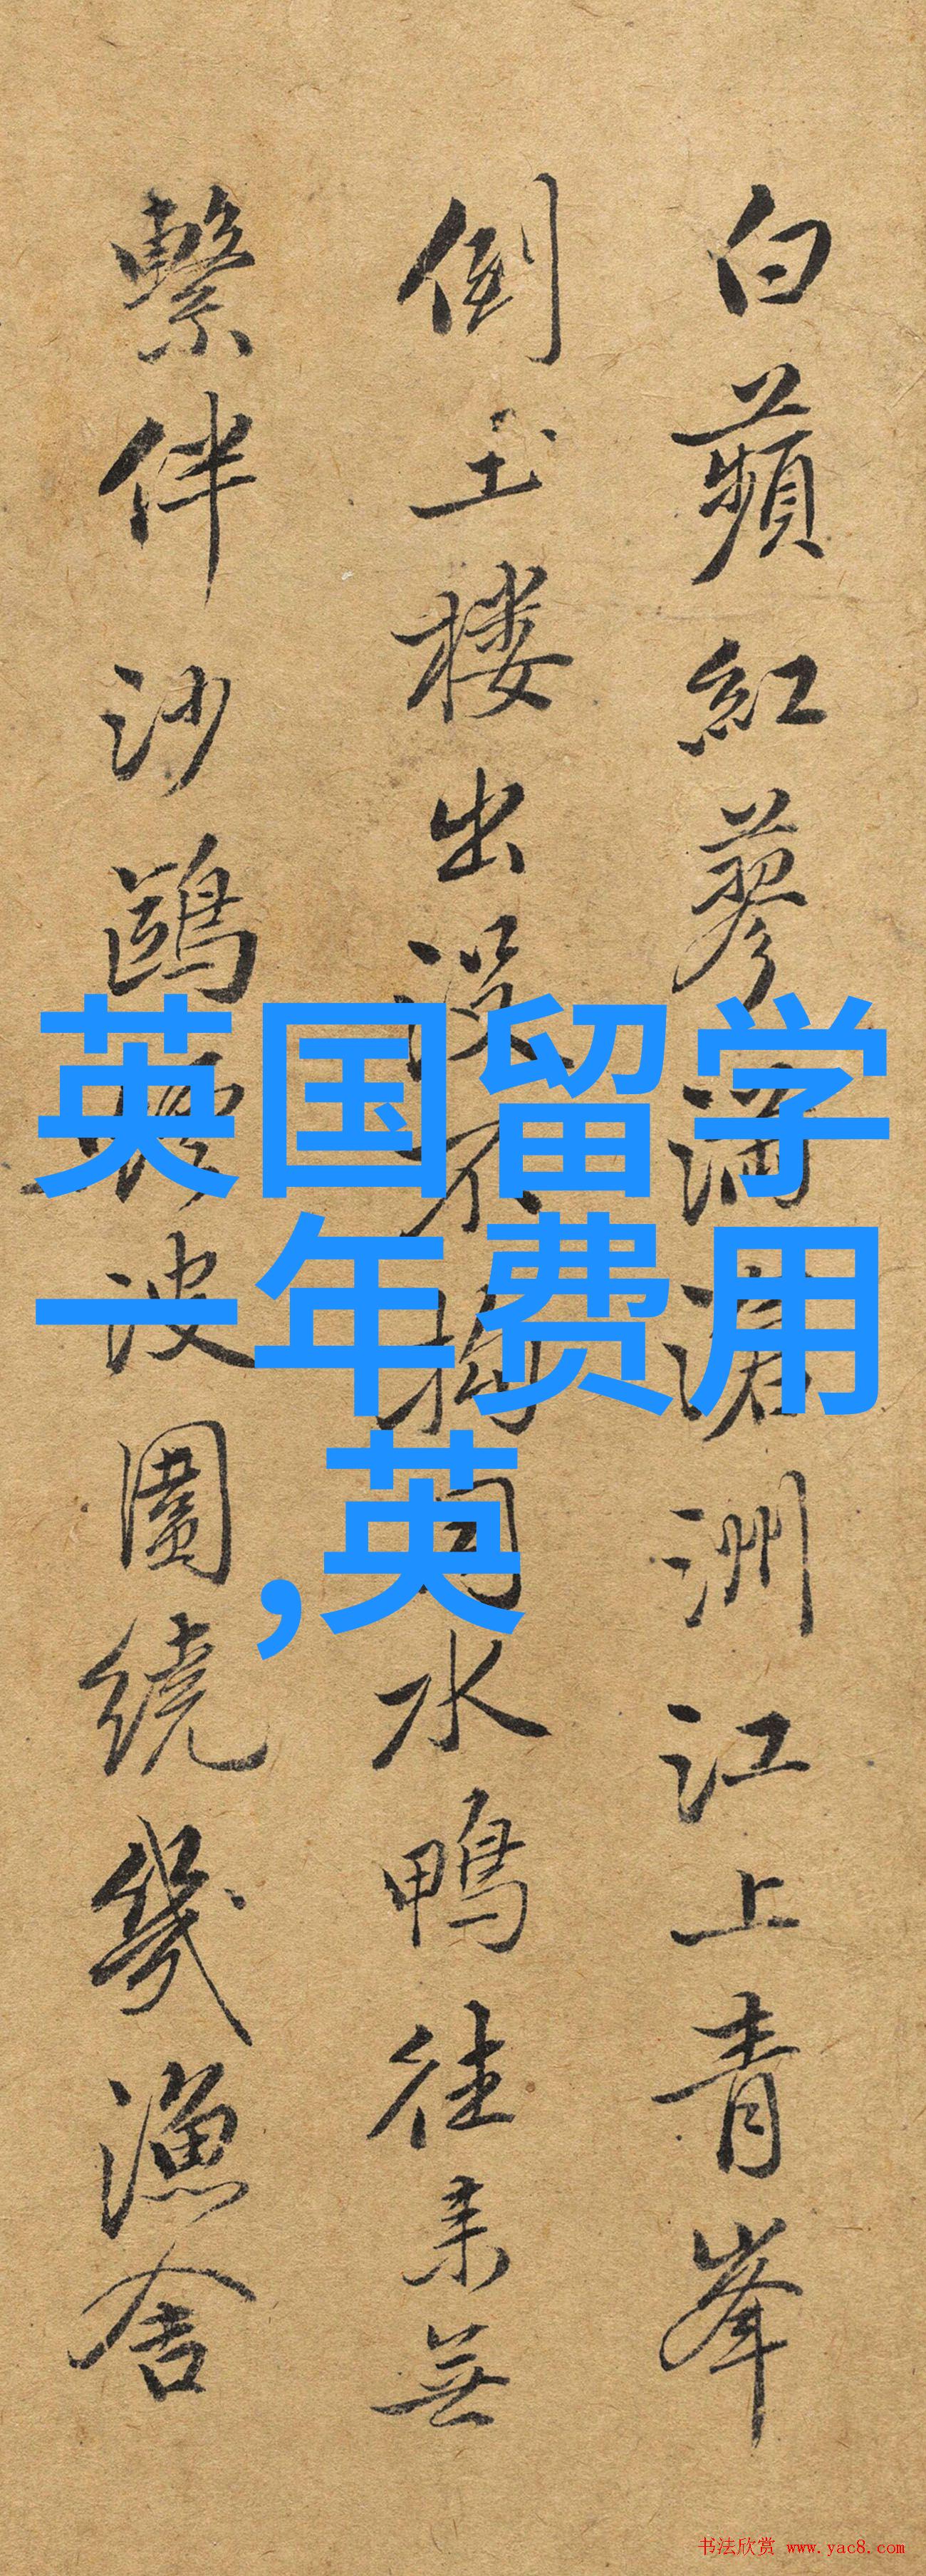 白蘋紅蓼滿滄洲江上青峯
倒玉楼出没不拘同水鴨往来無
繫伴沙鷗波圍繞幾漁舍
英国留学
一年费用
,英
书法欣赏 www.yac8.com